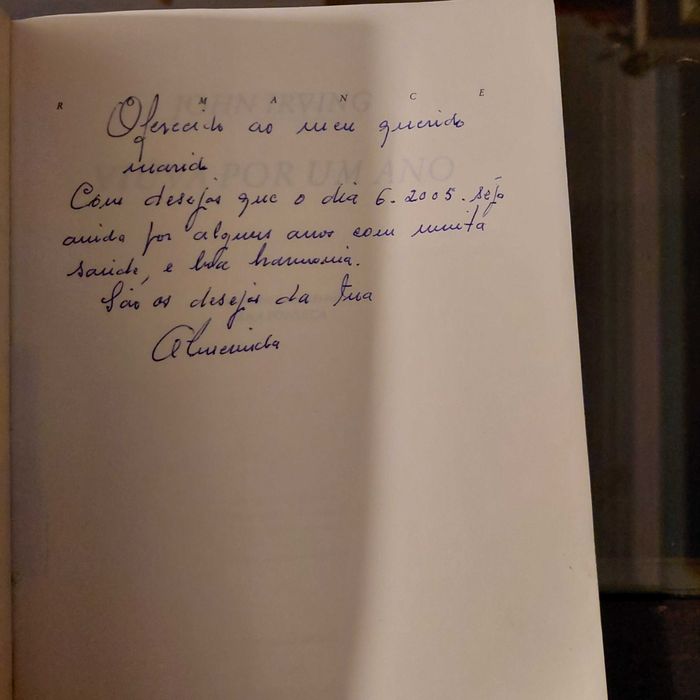 R O M A N C E
JOHN IRVING
Oferecido ao meu querido
marido
VIÚVA POR UM ANO
Com desejos que o dia 6.2005. seja
ainda por alguns anos com muita
saúde, e boa harmonia.
São os desejos da tua
Almerinda